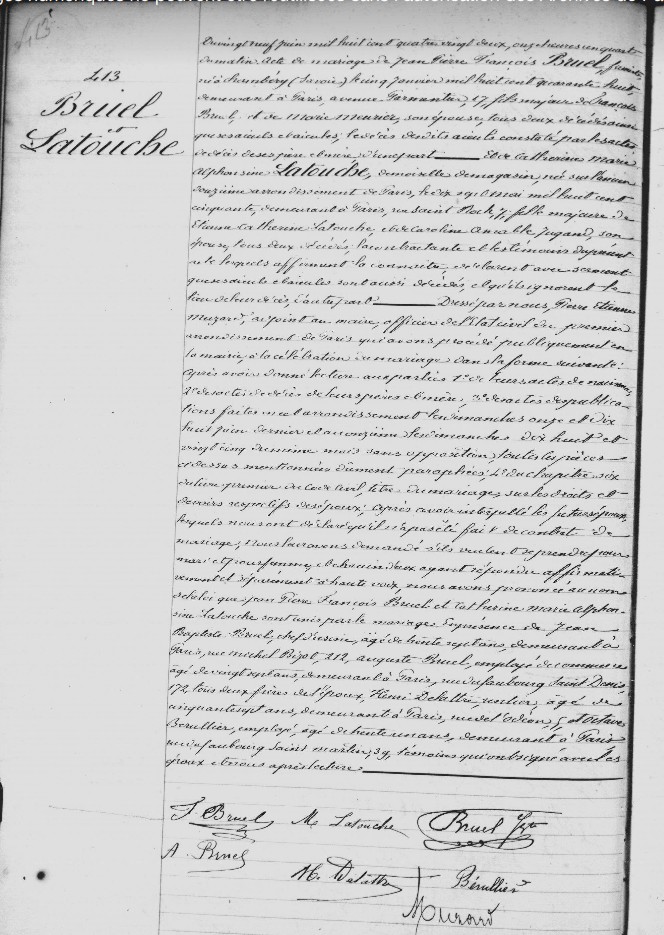 ges numériques ne peuvent être réutilisées sans l'autorisation des Archives de Pa
413
Bruel
et
Latouche
Du vingt neuf juin mil huit cent quatre vingt deux, onze heures un quart
du matin acte de mariage de Jean Pierre François Bruel, fumiste
né à Chambéry (Savoie) le cinq janvier mil huit cent quarante huit
demeurant à Paris, avenue Parmentier 17, fils majeur de François
Bruel, et de Marie Meunier, son épouse, tous deux décédés ainsi
que ses aïeuls et aïeules, le décès desdits aïeuls constaté par les actes
de décès de ses père et mère d'une part Et de Catherine Marie
Alphonsine Latouche, demoiselle de magasin, née sur l'ancien
douzième arrondissement de Paris, le dix sept mai mil huit cent
cinquante, demeurant à Paris, rue Saint Roch, 7, fille majeure de
Etienne Catherine Latouche, et de Caroline Amable Jugand, son
épouse, tous deux décédés, la contractante et les témoins du présent
acte lesquels affirment la connaître, déclarent avec serment
que ses aïeuls et aïeules sont aussi décédés, et qu'ils ignorent le
lieu de leur décès, d'autre part Dressé par nous, Pierre Etienne
Muzard, adjoint au maire, officier de l'Etat civil du premier
arrondissement de Paris qui avons procédé publiquement en
la mairie, à la célébration du mariage dans la forme suivante:
Après avoir donné lecture aux parties 1° de leurs actes de naissance,
2° des actes de décès de leurs pères et mères, 3° des actes de publica-
tions faites en cet arrondissement les dimanches onze et dix
huit juin dernier et au onzième les dimanches dix huit et
vingt cinq du même mois sans opposition, toutes les pièces
ci dessus mentionnées dûment paraphées, 4° du chapitre six
du livre premier du Code civil, titre du mariage, sur les droits et
devoirs respectifs des époux, après avoir interpellé les futurs époux,
lesquels nous ont déclaré qu'il n'a pas été fait de contrat de
mariage, nous leur avons demandé s'ils veulent se prendre pour
mari et pour femme, et chacun d'eux ayant répondu affirmati-
vement et séparément à haute voix, nous avons prononcé au nom
de la loi que Jean Pierre François Bruel et Catherine Marie Alphon-
sine Latouche sont unis par le mariage. En présence de Jean
Baptiste Bruel, chef d'escrie, âgé de trente sept ans, demeurant à
Paris, rue Michel Bizot, 212, Auguste Bruel, employé de commerce
âgé de vingt sept ans, demeurant à Paris, rue du faubourg Saint Denis,
172, tous deux frères de l'époux, Henri Delattre, rentier, âgé de
cinquante sept ans, demeurant à Paris, rue de l'Odéon 5, et Octave
Bérullier, employé, âgé de trente un ans, demeurant à Paris
rue du faubourg Saint Martin, 39, témoins qui ont signé avec les
époux et nous après lecture
J Bruel M Latouche Bruel
A. Bruel
H. Delattre Bérullier
Muzard